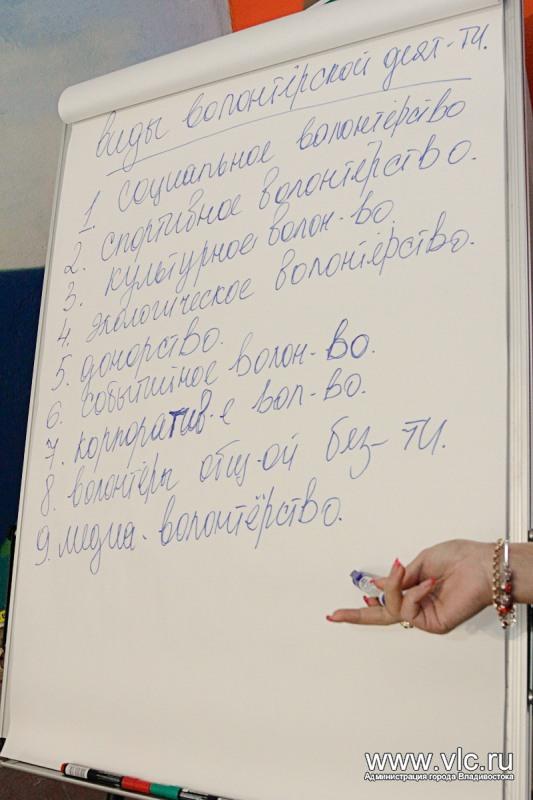 Виды волонтёрской деят-ти.
1. Социальное волонтёрство
2. Спортивное волонтёрство.
3. Культурное волон-во.
4. Экологическое волонтёрство.
5. Донорство.
6. Событийное волон-во.
7. Корпоратив-е вол-во.
8. Волонтёры общ-ой без-ти.
9. Медиа-волонтёрство.
www.vlc.ru
Администрация города Владивостока